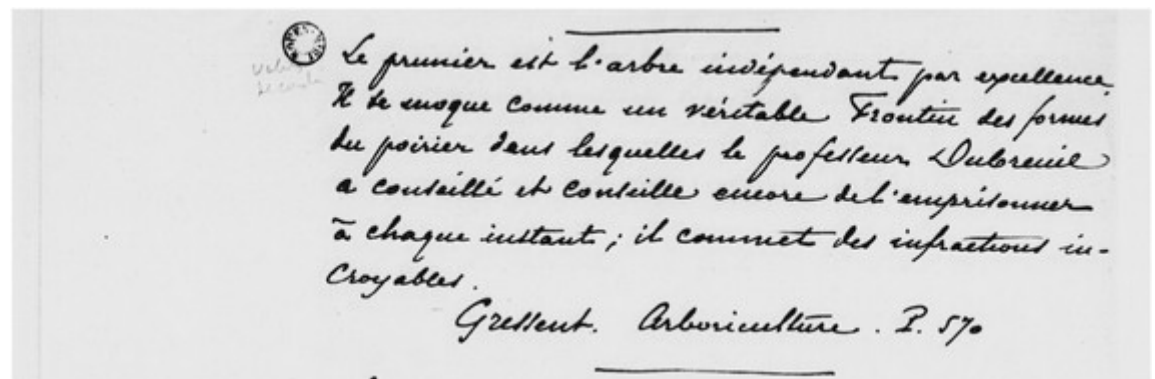 Le prunier est l'arbre indépendant par excellence.
Il se moque comme un véritable Frontin des formes
du poirier dans lesquelles le professeur Dubreuil
a conseillé et conseille encore de l'emprisonner
à chaque instant ; il commet des infractions in-
croyables.
Gressent. Arboriculture. P. 570